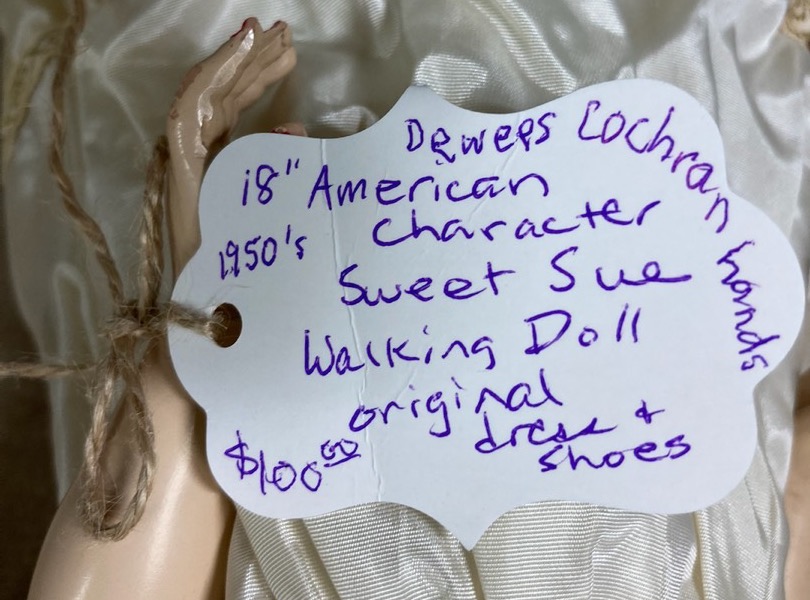 Dewees Cochran hands
18" American
1950's Character
Sweet Sue
Walking Doll
original
dress +
shoes
$100.00